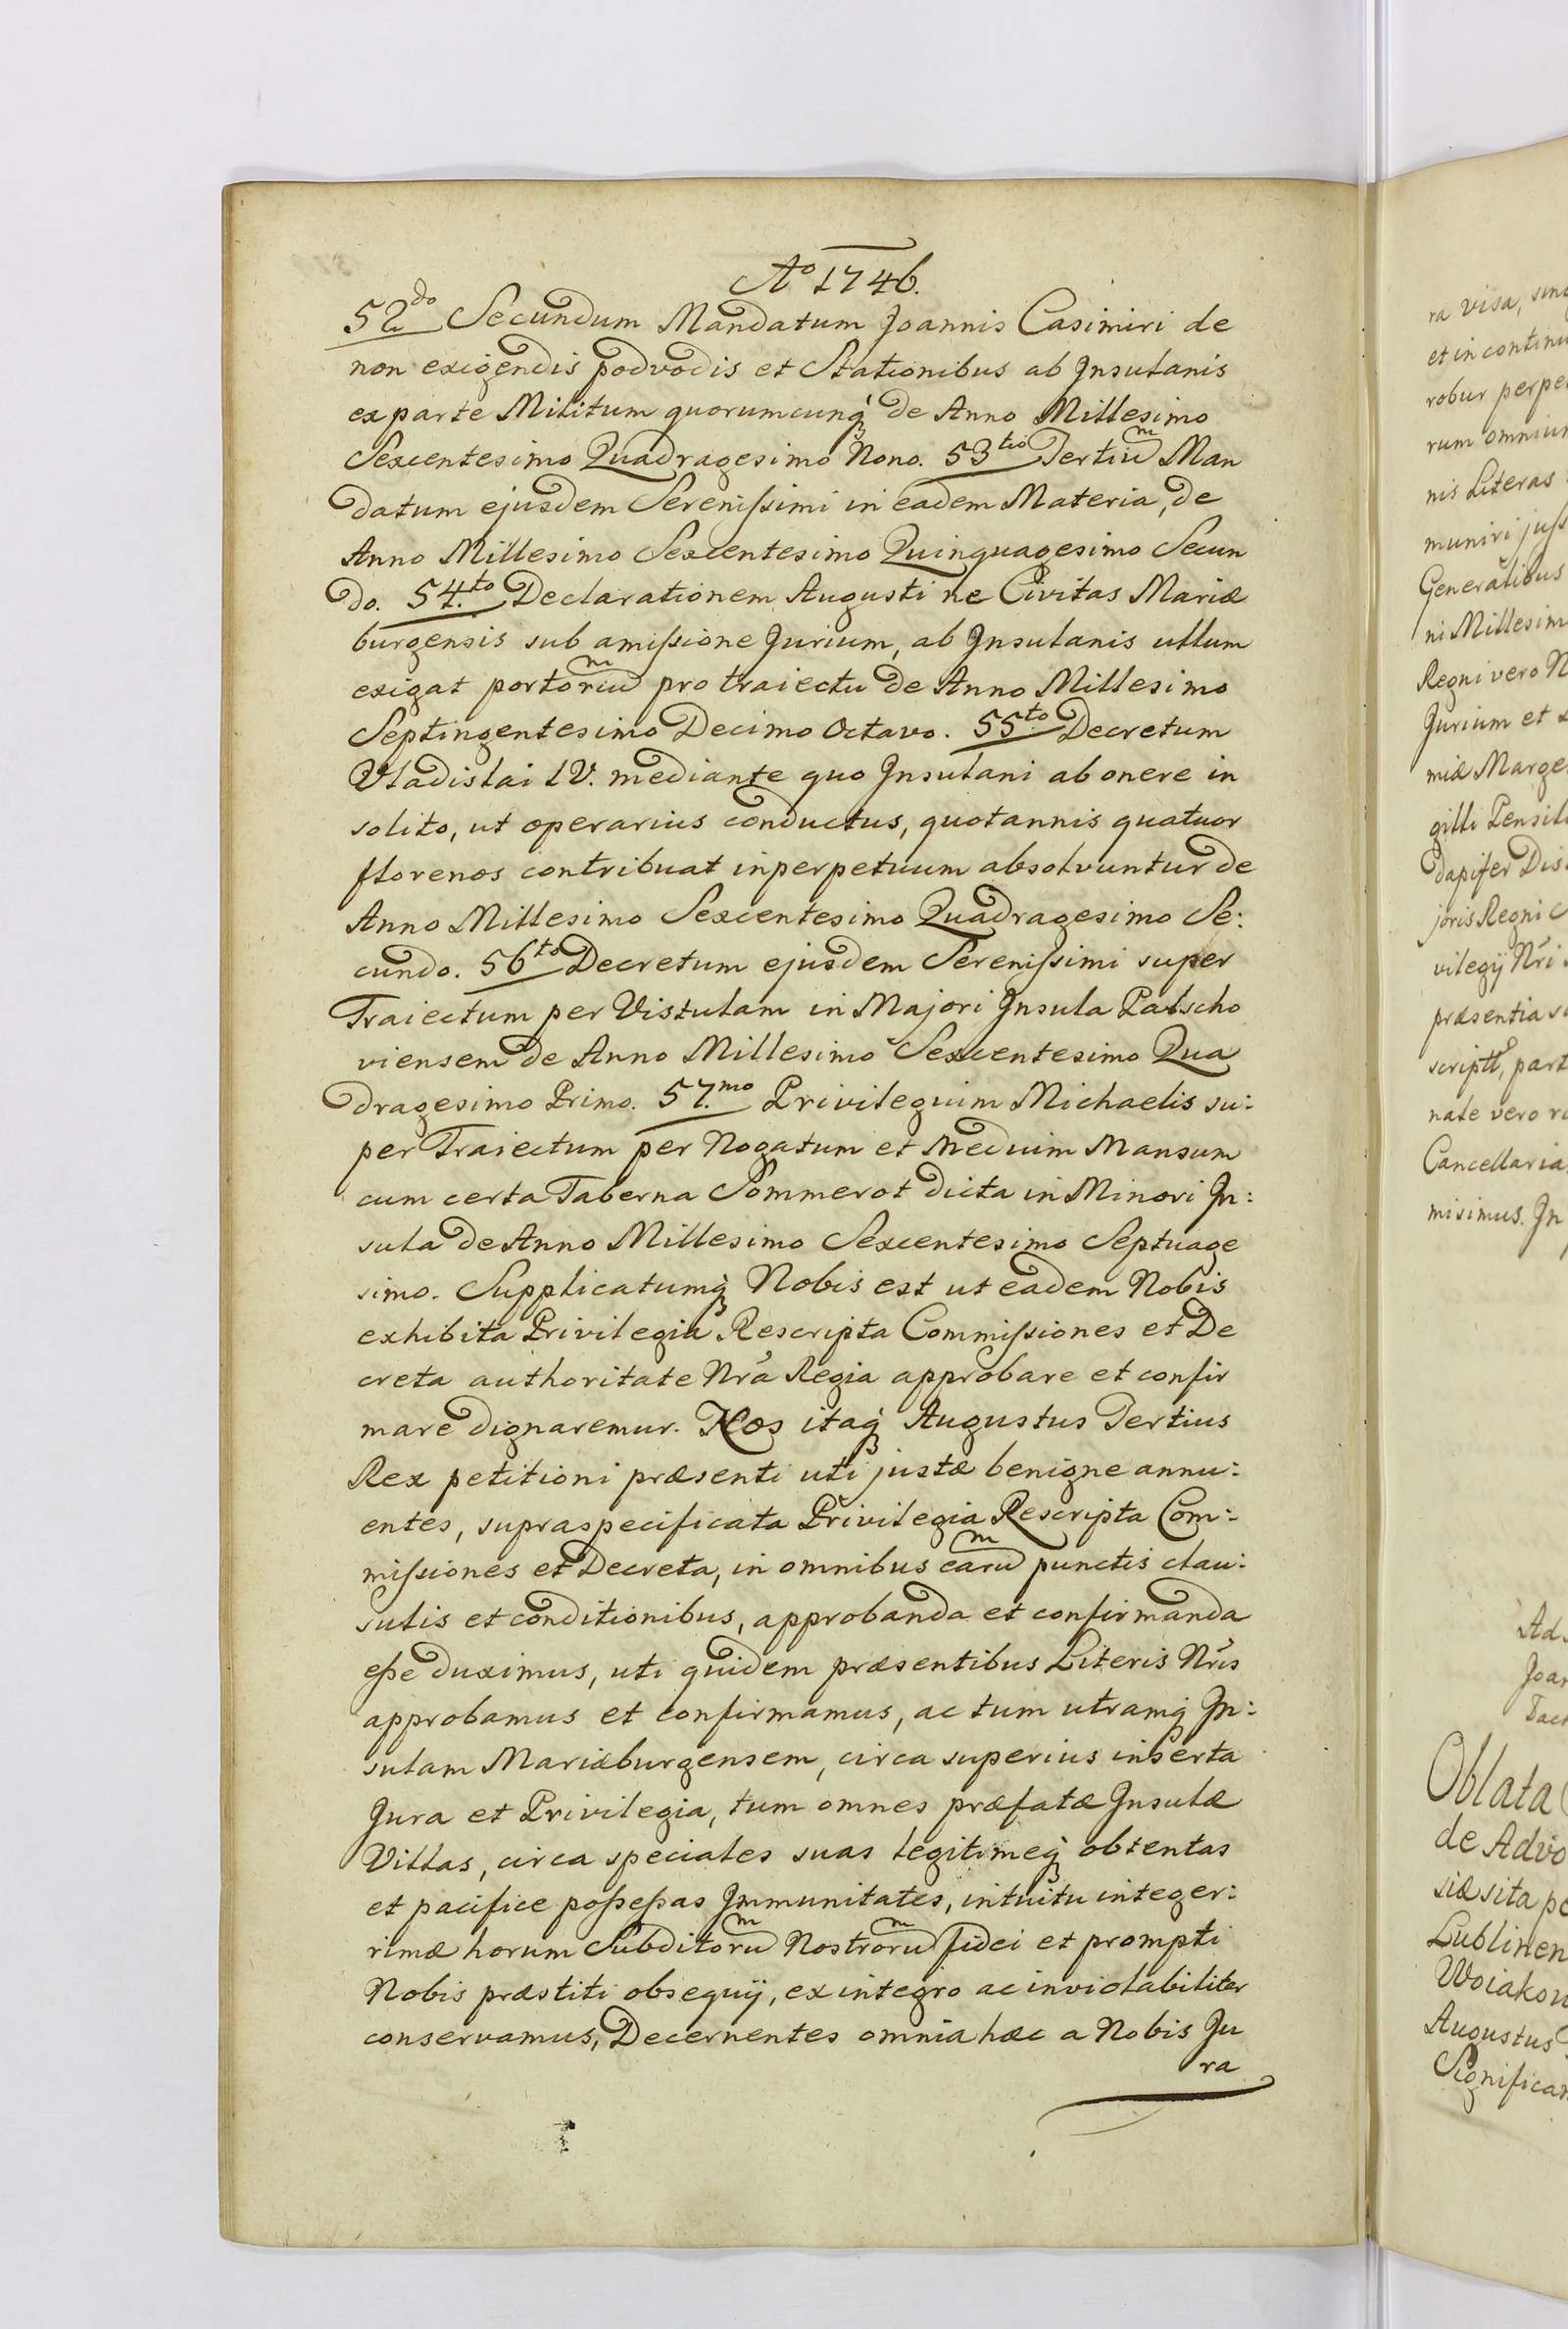 Aº 1746.
52do Secundum Mandatum Joannis Casimiri de
non exigendis podvodis et Stationibus ab Insulanis
ex parte Militum quorumcunq́ de Anno Millesimo
Sexcentesimo Quadragesimo Nono. 53tio Tertiū Man
datum ejusdem Serenissimi in eadem Materia, de
Anno Millesimo Sexcentesimo Quinquagesimo Secun
do. 54.to Declarationem Augusti ne Civitas Mariæ
burgensis sub amissione Jurium, ab Insulanis ullum
exigat portoriū pro traiectu de Anno Millesimo
Septingentesimo Decimo Octavo. 55.to Decretum
Vladislai IV. mediante quo Insulani ab onere in
solito, ut operarius conductus, quotannis quatuor
florenos contribuat in perpetuum absolvuntur de
Anno Millesimo Sexcentesimo Quadragesimo Se:
cundo. 56to Decretum ejusdem Serenissimi super
Traiectum per Vistulam in Majori Insula Palscho
viensem de Anno Millesimo Sexcentesimo Qua
dragesimo Primo. 57.mo Privilegium Michaelis su:
per Traiectum per Nogatum et Medium Mansum
cum certa Taberna Sommerot dicta in Minori In:
sula de Anno Millesimo Sexcentesimo Septuage
simo. Supplicatumq́ Nobis est ut eadem Nobis
exhibita Privilegia Rescripta Commissiones et De
creta authoritate Nrá Regia approbare et confir
mare dignaremur. Nos itaq́ Augustus Tertius
Rex petitioni præsenti uti justæ benigne annu:
entes, supraspecificata Privilegia Rescripta Com:
missiones et Decreta, in omnibus earū punctis clau:
sulis et conditionibus, approbanda et confirmanda
esse duximus, uti quidem præsentibus Literis Nrís
approbamus et confirmamus, ac tum utramq́ In:
sulam Mariæburgensem, circa superius inserta
Jura et Privilegia, tum omnes præfatæ Insulæ
Villas, circa speciales suas legitimeq́ obtentas
et pacifice possessas Immunitates, intuitu integer:
rimæ horum Subditorū Nostrorū fidei et prompti
Nobis præstiti obsequij, ex integro ac inviolabiliter
conservamus, Decernentes omnia hæc a Nobis Ju
ra
ra visa,
et in continu
robur perpe
rum omniu
nis Literas
muniri juss
Generalibus
ni Millesim
Regni vero N
Jurium et
miæ Marge
gilli Pensili
dapifer Dis
joris Regni
vilegij Nrí
præsentia
scripti, part
nate vero
Cancellaria
misimus. In
Ad
Joan
Oblata
de Advo
siæ sita pe
Lublinen
Woiakow
Augustus
Significam